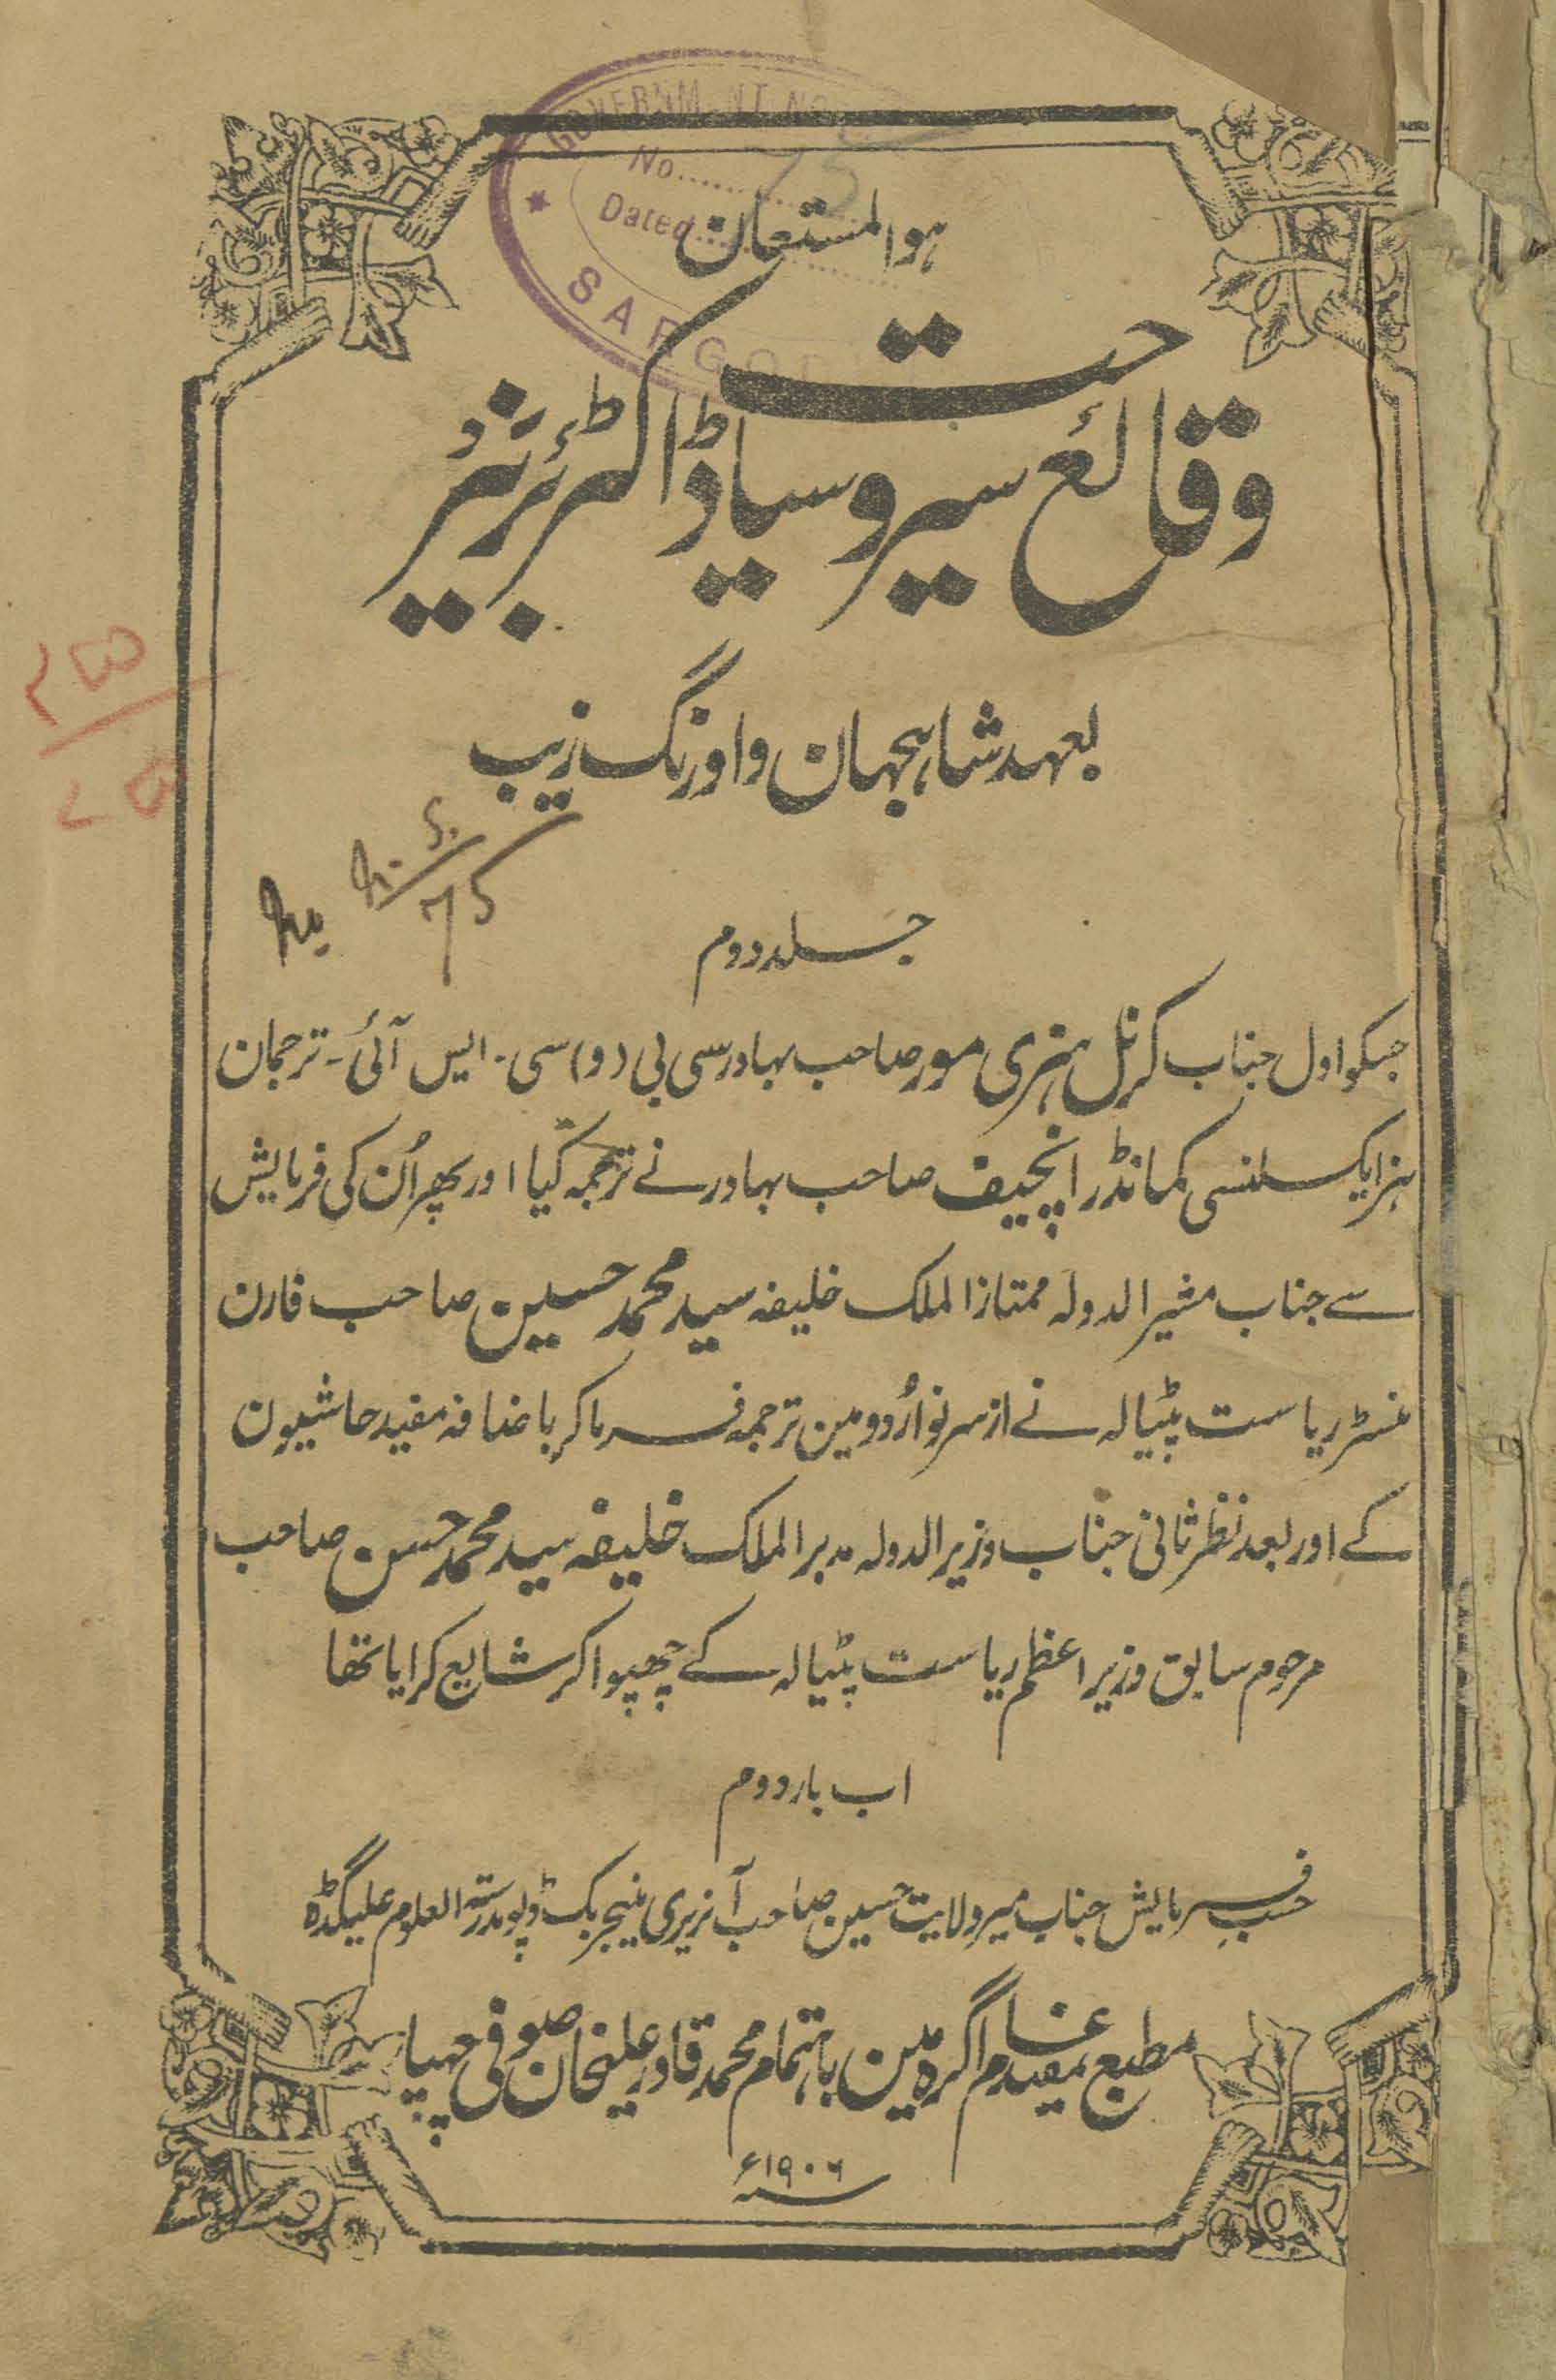 ہوالمستعان
وقائع سیر و سیاحت ڈاکٹر برنیر
بعہد شاہجہان و اورنگ زیب
جلد دوم
جسکو اول جناب کرنل ہنری مور صاحب بہادر سی بی (و) سی۔ ایس آئی۔ ترجمان
ہزایکسلنسی کمانڈر انچیف صاحب بہادر نے ترجمہ کیا اور پھر اُن کی فرمایش
سے جناب مشیرالدولہ ممتازالملک خلیفہ سید محمد حسین صاحب فارن
منسٹر ریاست پٹیالہ نے ازسرنو اُردو مین ترجمہ فرماکر باضافہ مفید حاشیون
کے اور بعد نظرثانی جناب وزیرالدولہ مدبرالملک خلیفہ سید محمد حسن صاحب
مرحوم سابق وزیراعظم ریاست پٹیالہ کے چھپواکر شایع کرایا تھا
اب بار دوم
حسب فرمایش جناب میر ولایت حسین صاحب آنریری منیجر بک ڈپو مدرسۃ العلوم علیگڈہ
مطبع مفید عام اگرہ مین باہتمام محمد قادر علیخان صوفی چھپا
سنہ ۱۹۰۶ء
GOVERNM NT
No.
Dated
75
۲۵
۷۵